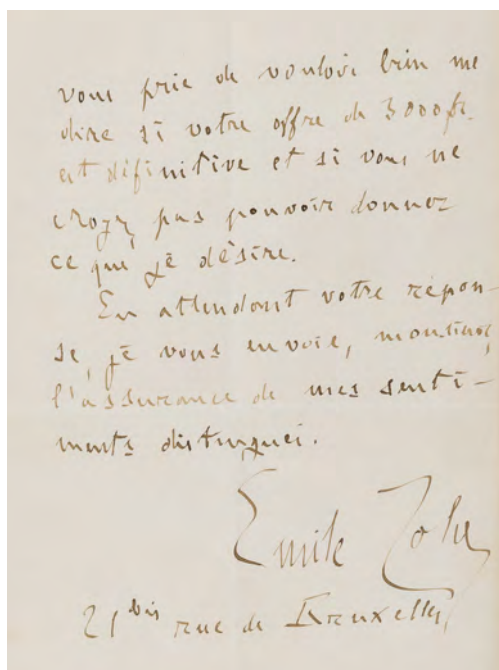 vous prie de vouloir bien me
dire si votre offre de 3000 fr.
est définitive et si vous ne
croyez pas pouvoir donner
ce que je désire.
En attendant votre répon-
se, je vous envoie, monsieur,
l'assurance de mes senti-
ments distingués.
Emile Zola
21 bis rue de Bruxelles